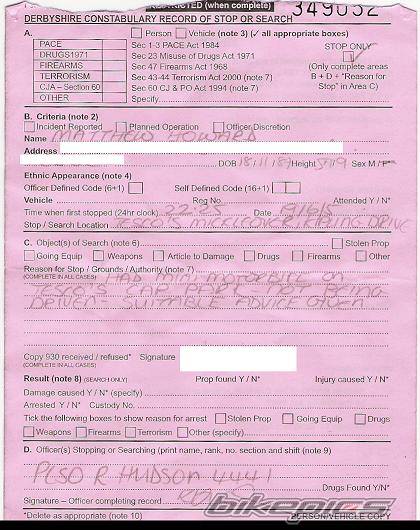 RESTRICTED (when complete) 349052
DERBYSHIRE CONSTABULARY RECORD OF STOP OR SEARCH
A. Person Vehicle (note 3) (✓ all appropriate boxes)
PACE Sec 1-3 PACE Act 1984 STOP ONLY
DRUGS1971 Sec 23 Misuse of Drugs Act 1971 ✓
FIREARMS Sec 47 Firearms Act 1968 (Only complete areas
TERRORISM Sec 43-44 Terrorism Act 2000 (note 7) B + D + "Reason for
CJA – Section 60 Sec 60 CJ & PO Act 1994 (note 7) Stop" in Area C)
OTHER Specify
B. Criteria (note 2)
Incident Reported Planned Operation Officer Discretion
Name MATTHEW HOWARD
Address
DOB 18/11/87 Height 5'9 Sex M / F*
Ethnic Appearance (note 4)
Officer Defined Code (6+1) Self Defined Code (16+1)
Vehicle Reg No Attended Y / N*
Time when first stopped (24hr clock) 22:25 Date 9/6/5
Stop / Search Location TESCO'S MICKLEOVER, KIPLING DRIVE
C. Object(s) of Search (note 6) Stolen Prop
Going Equip Weapons Article to Damage Drugs Firearms Other
Reason for Stop / Grounds / Authority (note 7)
(COMPLETE IN ALL CASES) HAD MINI MOTORBIKE ON
TESCO'S CAR PARK NOT BEING
DRIVEN - SUITABLE ADVICE GIVEN
Copy 930 received / refused* Signature
(COMPLETE IN ALL CASES)
Result (note 8) (SEARCH ONLY) Prop found Y / N* Injury caused Y / N*
Damage caused Y / N* (specify)
Arrested Y / N* Custody No.
Tick the following boxes to show reason for arrest Stolen Prop Going Equip Drugs
Weapons Firearms Terrorism Other (specify)
D. Officer(s) Stopping or Searching (print name, rank, no. section and shift (note 9)
PCSO R HUDSON 4441
Drugs Found Y/N*
Signature – Officer completing record
*Delete as appropriate (note 10) PERSON/VEHICLE COPY
bikepics